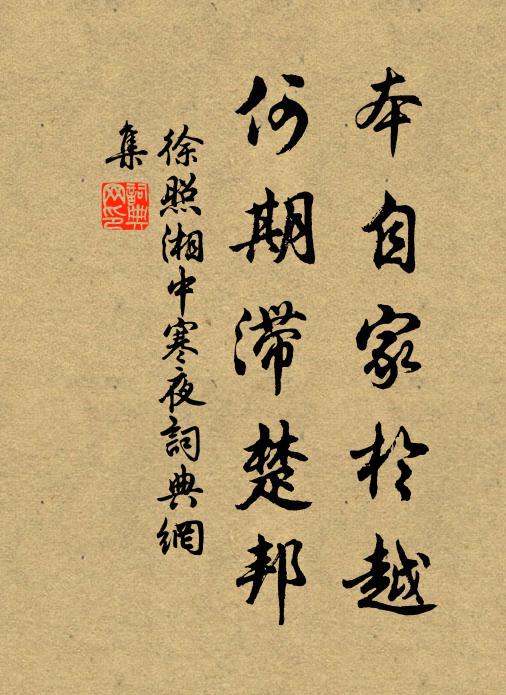 本自家於越
何期滯楚邦
徐照湘中寒夜詞典網
集
詞典
网印